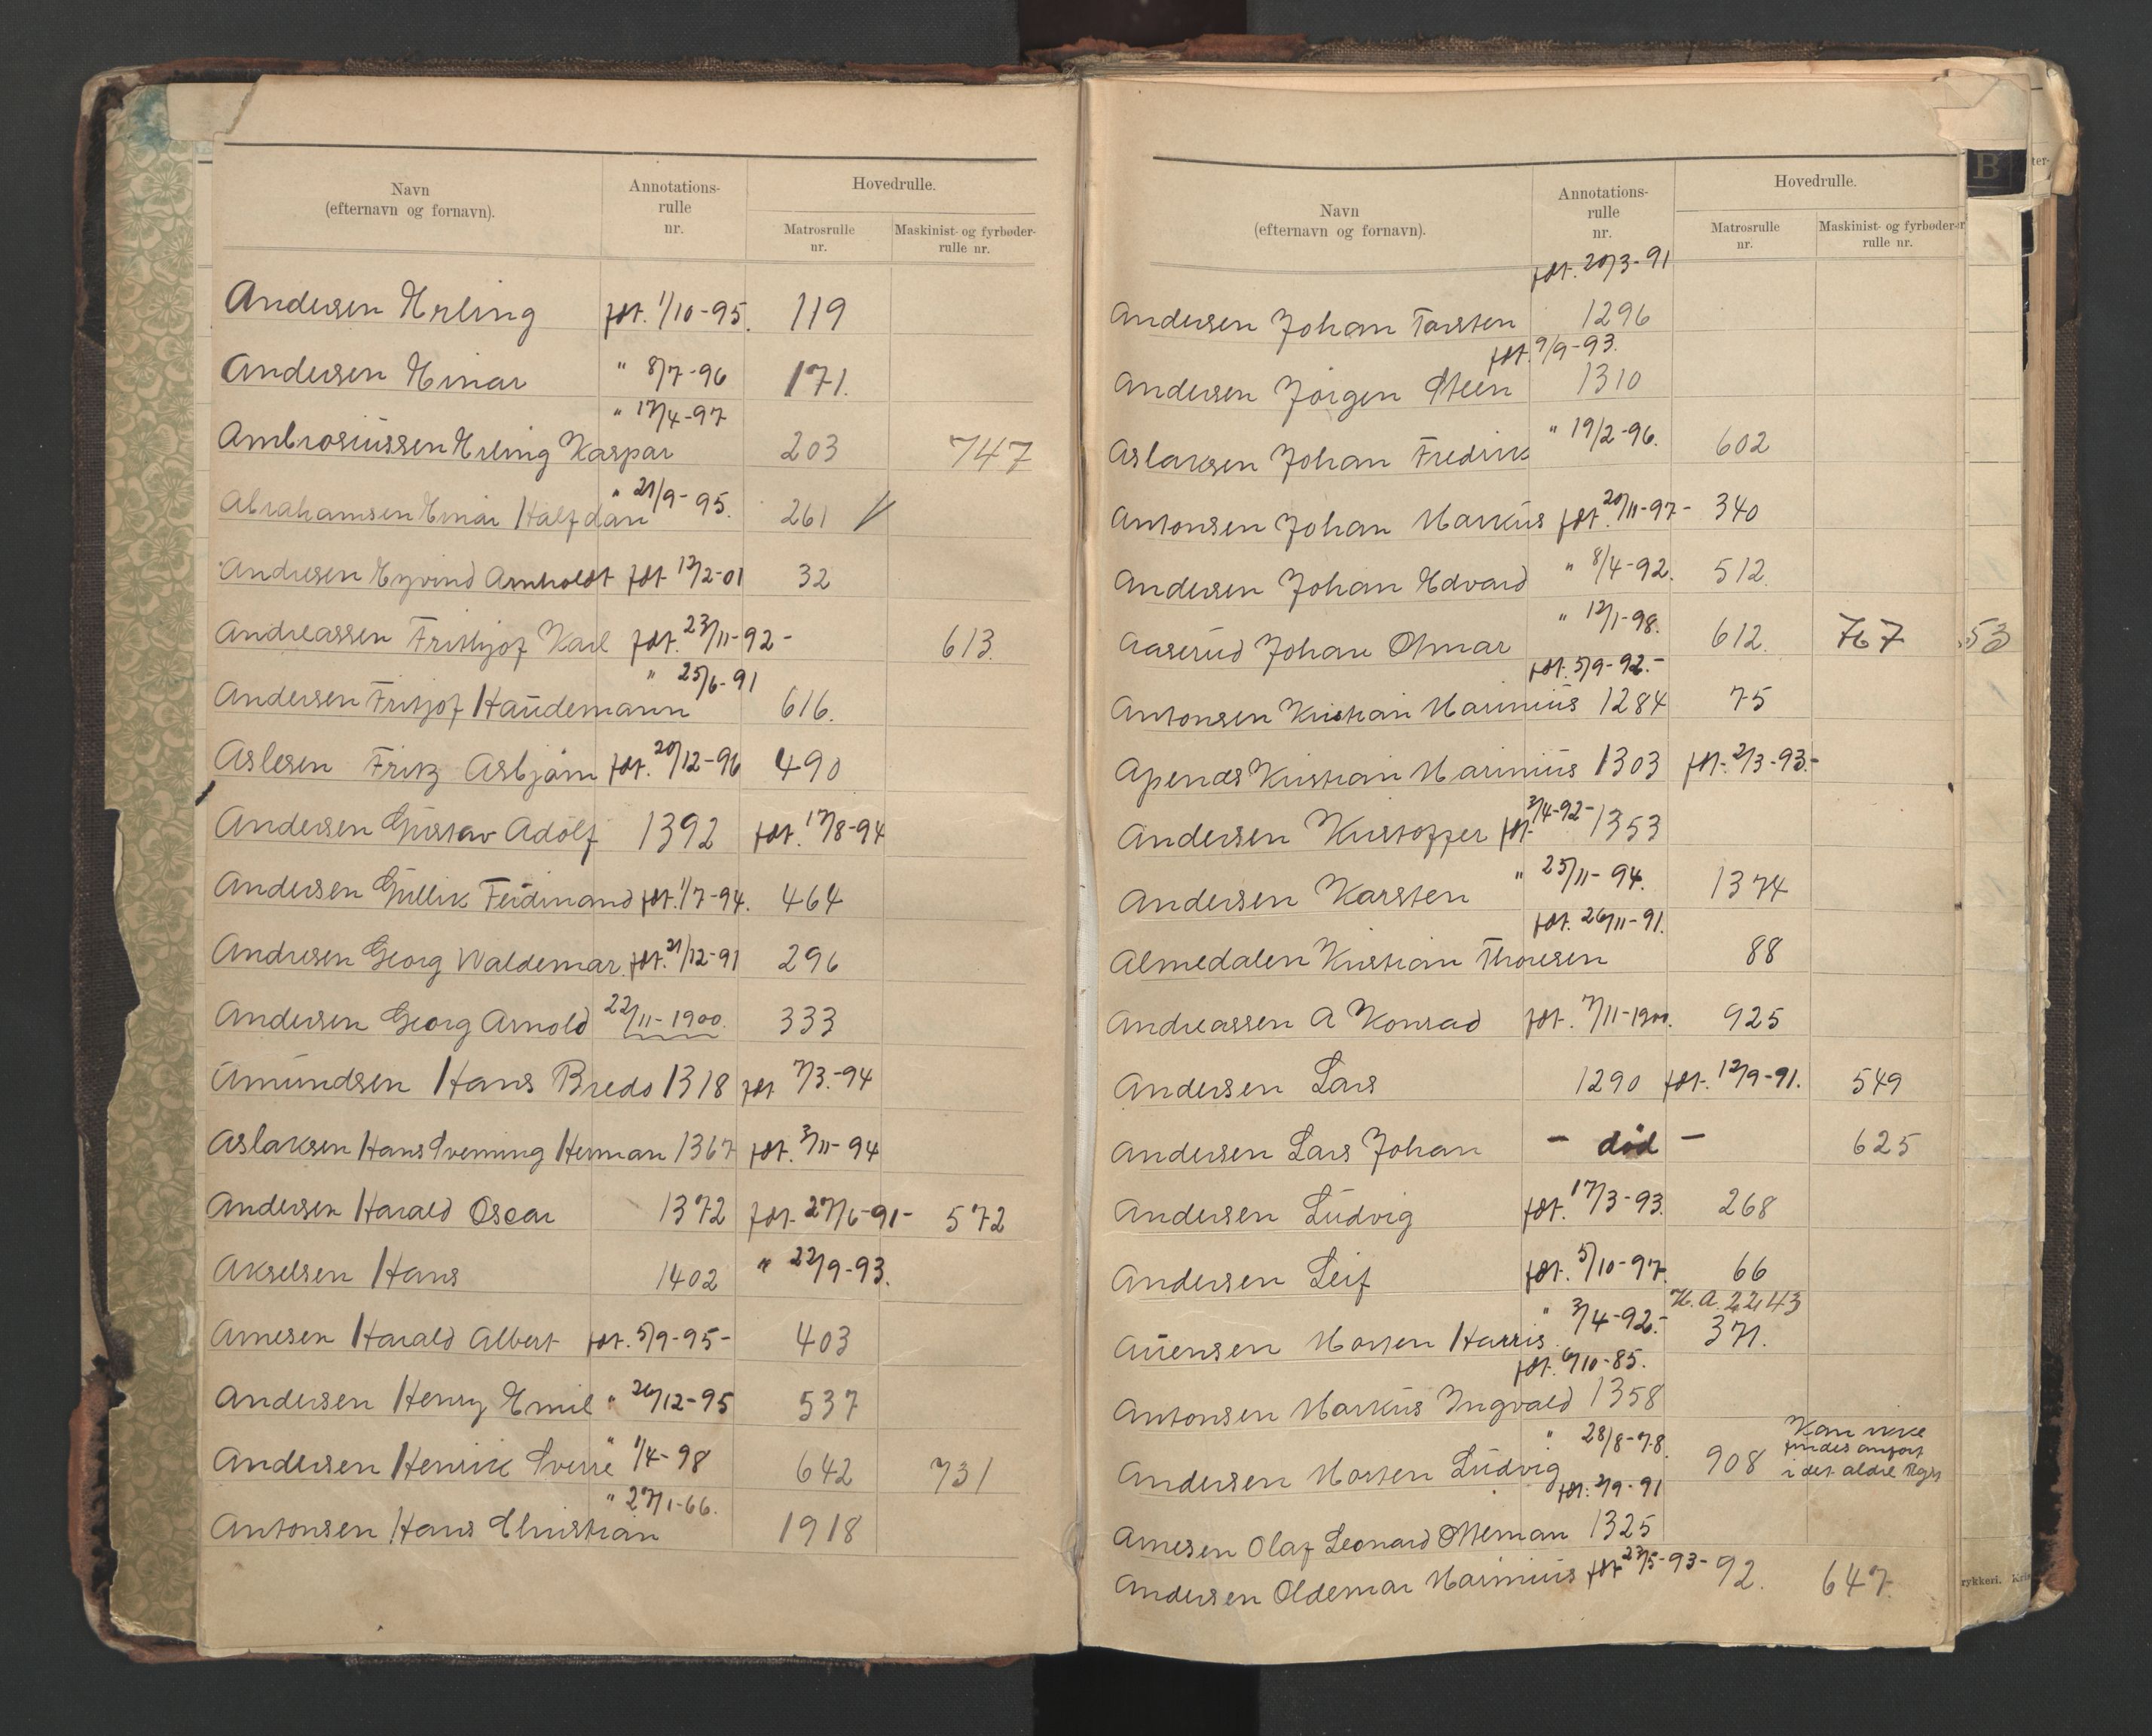 Navn
(efternavn og fornavn).
Annotations-
rulle
nr.
Hovedrulle.
Matrosrulle
nr.
Maskinist- og fyrbøder-
rulle nr.
Andersen Erling føt. 1/10-95. 119
Andersen Einar " 8/7-96 171.
" 17/4-97
Ambrosiussen Erling Kaspar 203 747
Abrahamsen Einar Halfdan " 21/9-95. 261 V
Andresen Eyvind Arnholdt føt 12/2-01 32
Andreassen Frithjof Karl føt. 23/11-92- 613.
" 25/6-91
Andersen Fritjof Haudemann 616.
Aslesen Fritz Asbjørn føt. 20/12-96 490
Andersen Gustav Adolf 1392 føt. 17/8-94
Andersen Gullik Ferdinand føt. 1/7-94. 464
Andresen Georg Waldemar. føt. 21/12-91 296
Andersen Georg Arnold 22/11-1900. 333
Amundsen Hans Bredo 1318 føt 7/3.-94
Aslaksen Hans Svenning Herman 1367 føt. 3/11-94
Andersen Harald Oscar 1372 føt. 27/6-91- 572
Akselsen Hans 1402 " 22/9-93.
Arnesen Harald Albert føt. 5/9-95- 403
Andersen Henry Emil " 26/12-95 537
Andersen Henrik Sverre " 1/4-98 642 731
" 27/1-66.
Antonsen Hans Christian 1918
Navn
(efternavn og fornavn).
Annotations-
rulle
nr.
Hovedrulle.
Matrosrulle
nr.
Maskinist- og fyrbøder-
rulle nr.
føt. 20/3-91
Andersen Johan Tarsten 1296
føt. 9/9-93.
Andersen Jørgen Steen 1310
Aslaksen Johan Fredrik " 19/2-96. 602
Antonsen Johan Markus føt. 20/11-97- 340
Andersen Johan Edvard " 8/4-92. 512.
" 12/1-98.
Aaserud Johan Otmar 612. 767 53
føt. 5/9-92.-
Antonsen Kristian Marinius 1284 75
Apenæs Kristian Marinius 1303 føt. 2/3-93.-
Andersen Kristoffer føt. 3/4-92- 1353
Andersen Karsten " 25/11-94. 1374
føt. 26/11-91.
Almedalen Kristian Thoresen 88
Andreassen A Konrad føt. 7/11-1900. 925
Andersen Lars 1290 føt. 12/9-91. 549
Andersen Lars Johan - død - 625
Andersen Ludvig føt. 17/3-93. 268
Andersen Leif føt. 5/10-97. 66
K. A. 2243
Auensen Morten Harris. " 3/4-92.- 371.
føt. 6/10-85.
Antonsen Markus Ingvald 1358
" 28/8-78.
Andersen Morten Ludvig 908 Kan ikke
findes anført
i det ældre Rgst
føt. 2/9-91
Arnesen Olaf Leonard Otteman 1325
Andersen Oldemar Marinius føt 23/5-93- 92. 647.
B
ter-
rykkeri.